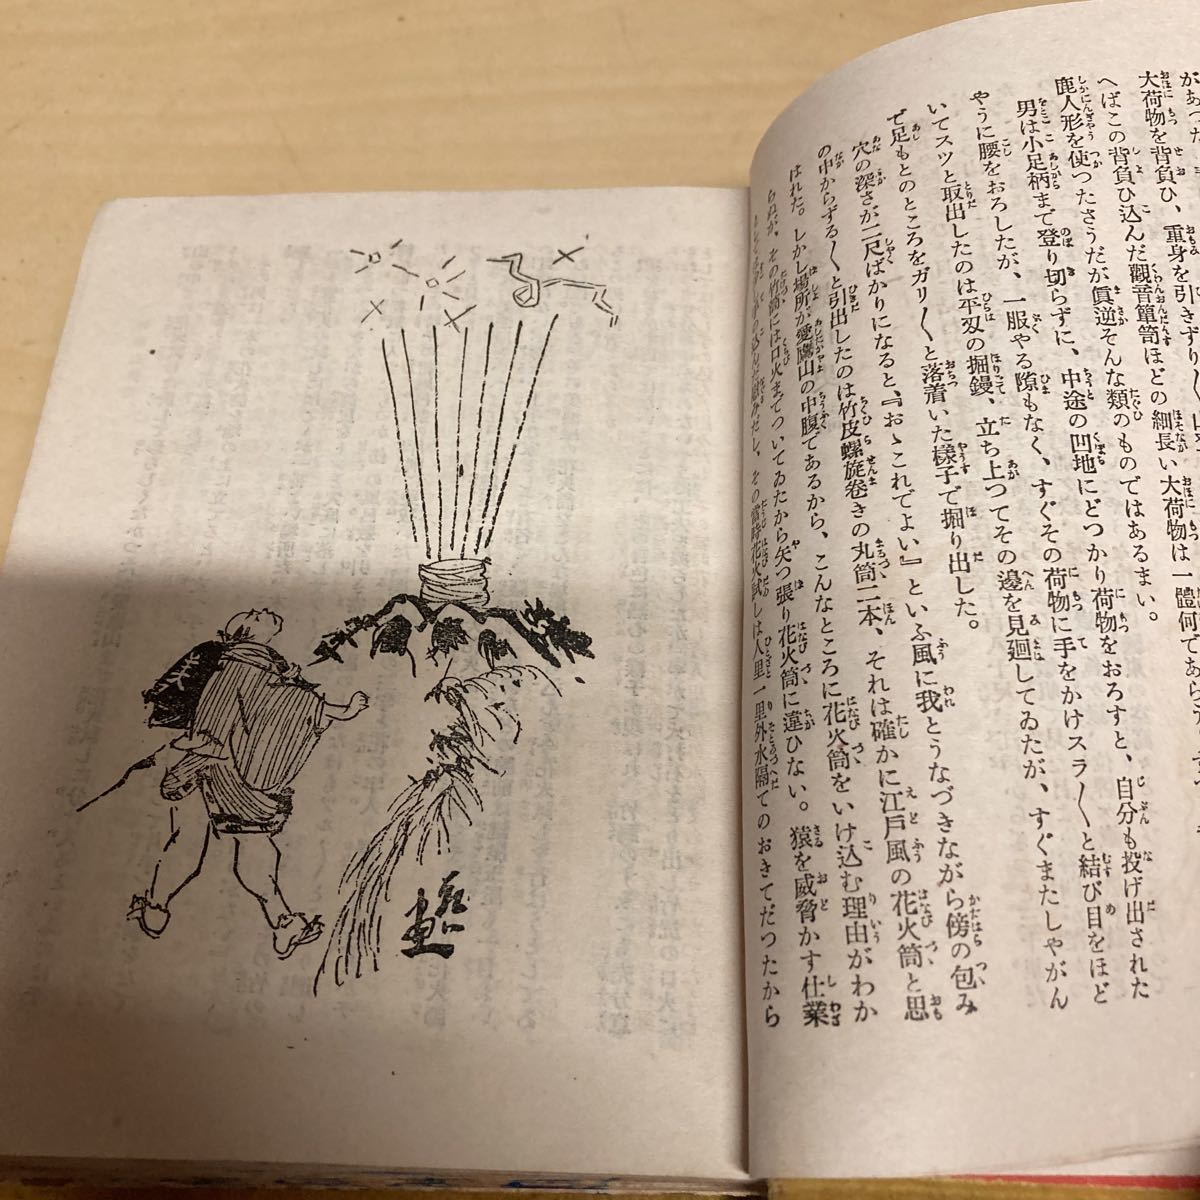 大荷物を背負ひ、重身を引きずり〱
へばこの背負ひ込んだ觀音簞笥ほどの細長い大荷物は一體何であら
鹿人形を使つたさうだが眞逆そんな類のものではあるまい。
男は小足柄まで登り切らずに、中途の凹地にどつかり荷物をおろすと、自分も投げ出された
やうに腰をおろしたが、一服やる隙もなく、すぐその荷物に手をかけスラ〱と結び目をほど
いてスツと取出したのは平双の掘鏝、立ち上つてその邊を見廻してゐたが、すぐまたしやがん
で足もとのところをガリ〱と落着いた樣子で掘り出した。
穴の深さが二尺ばかりになると、『おゝこれでよい』といふ風に我とうなづきながら傍の包み
の中からずる〱と引出したのは竹皮螺旋卷きの丸筒二本、それは確かに江戸風の花火筒と思
はれた。しかし場所が愛鷹山の中腹であるから、こんなところに花火筒をいけ込む理由がわか
らぬが、その竹筒には口火までついてゐたから矢つ張り花火筒に違ひない。猿を威脅かす仕業
その當時花火試しは人里一里外水隔てのおきてだつたから
画